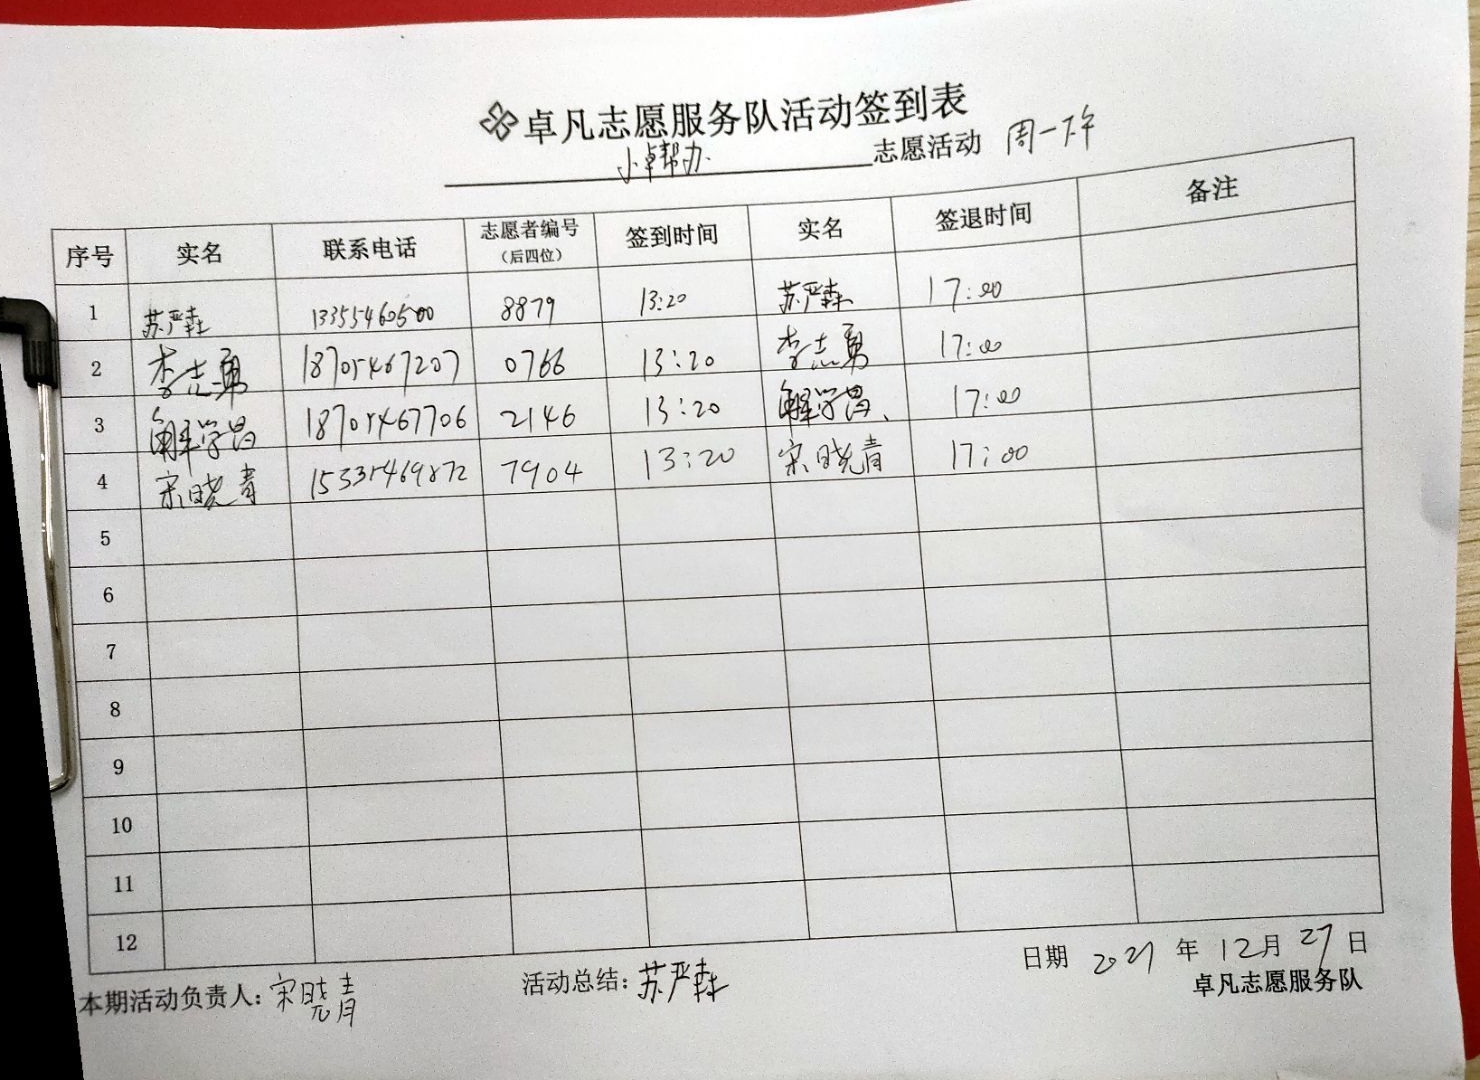 卓凡志愿服务队活动签到表
小卓帮办 志愿活动 周一下午
序号 实名 联系电话 志愿者编号（后四位） 签到时间 实名 签退时间 备注
1 苏严森 13355460500 8879 13:20 苏严森 17:00
2 李志勇 18705467207 0766 13:20 李志勇 17:00
3 解学昌 18705467706 2146 13:20 解学昌 17:00
4 宋晓青 15335469872 7904 13:20 宋晓青 17:00
5
6
7
8
9
10
11
12
本期活动负责人：宋晓青 活动总结：苏严森 日期 2021 年 12 月 27 日
卓凡志愿服务队